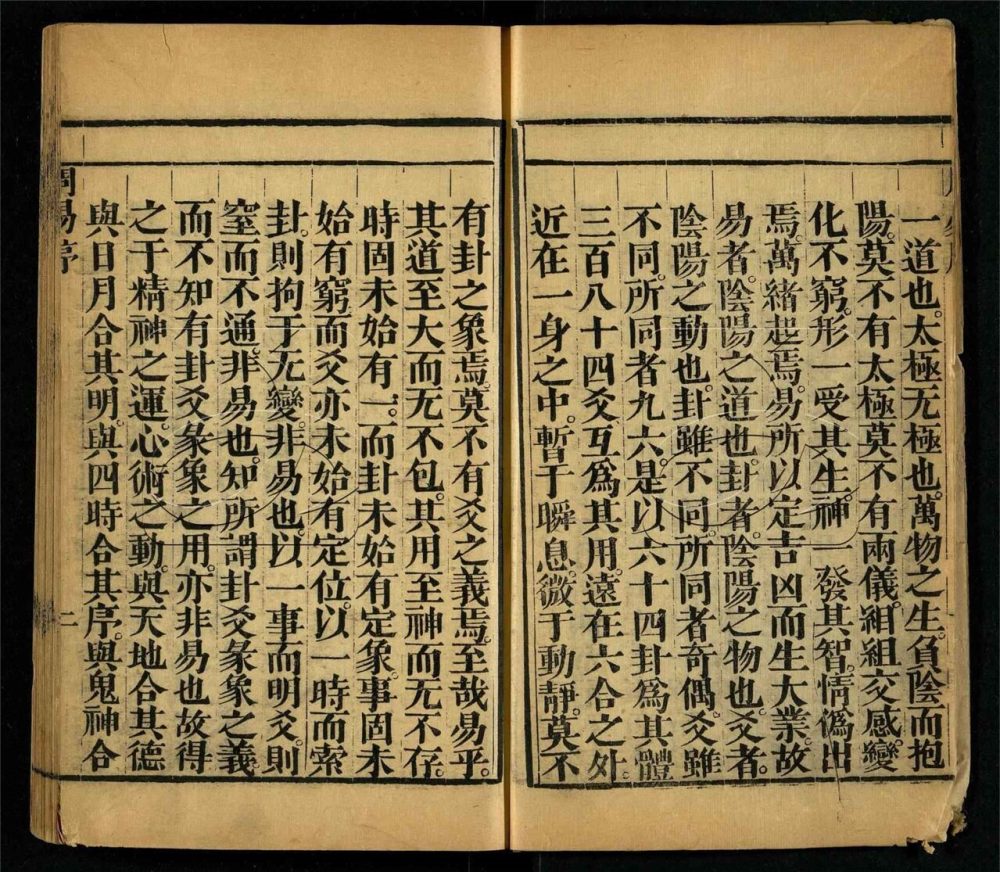 一道也。太極无極也。萬物之生。負陰而抱
陽。莫不有太極莫不有兩儀。絪縕交感。變
化不窮。形一受其生。神一發其智。情僞出
焉。萬緒起焉。易所以定吉凶而生大業。故
易者。陰陽之道也。卦者。陰陽之物也。爻者。
陰陽之動也。卦雖不同。所同者奇偶。爻雖
不同。所同者九六。是以六十四卦爲其體
三百八十四爻互爲其用。遠在六合之外。
近在一身之中。暫于瞬息。微于動靜。莫不
有卦之象焉。莫不有爻之義焉。至哉易乎。
其道至大而无不包。其用至神而无不存。
時固未始有一。而卦未始有定象。事固未
始有窮。而爻亦未始有定位。以一時而索
卦。則拘于无變。非易也。以一事而明爻。則
窒而不通。非易也。知所謂卦爻彖象之義
而不知有卦爻彖象之用。亦非易也故得
之于精神之運。心術之動。與天地合其德
與日月合其明。與四時合其序。與鬼神合
周易序
二